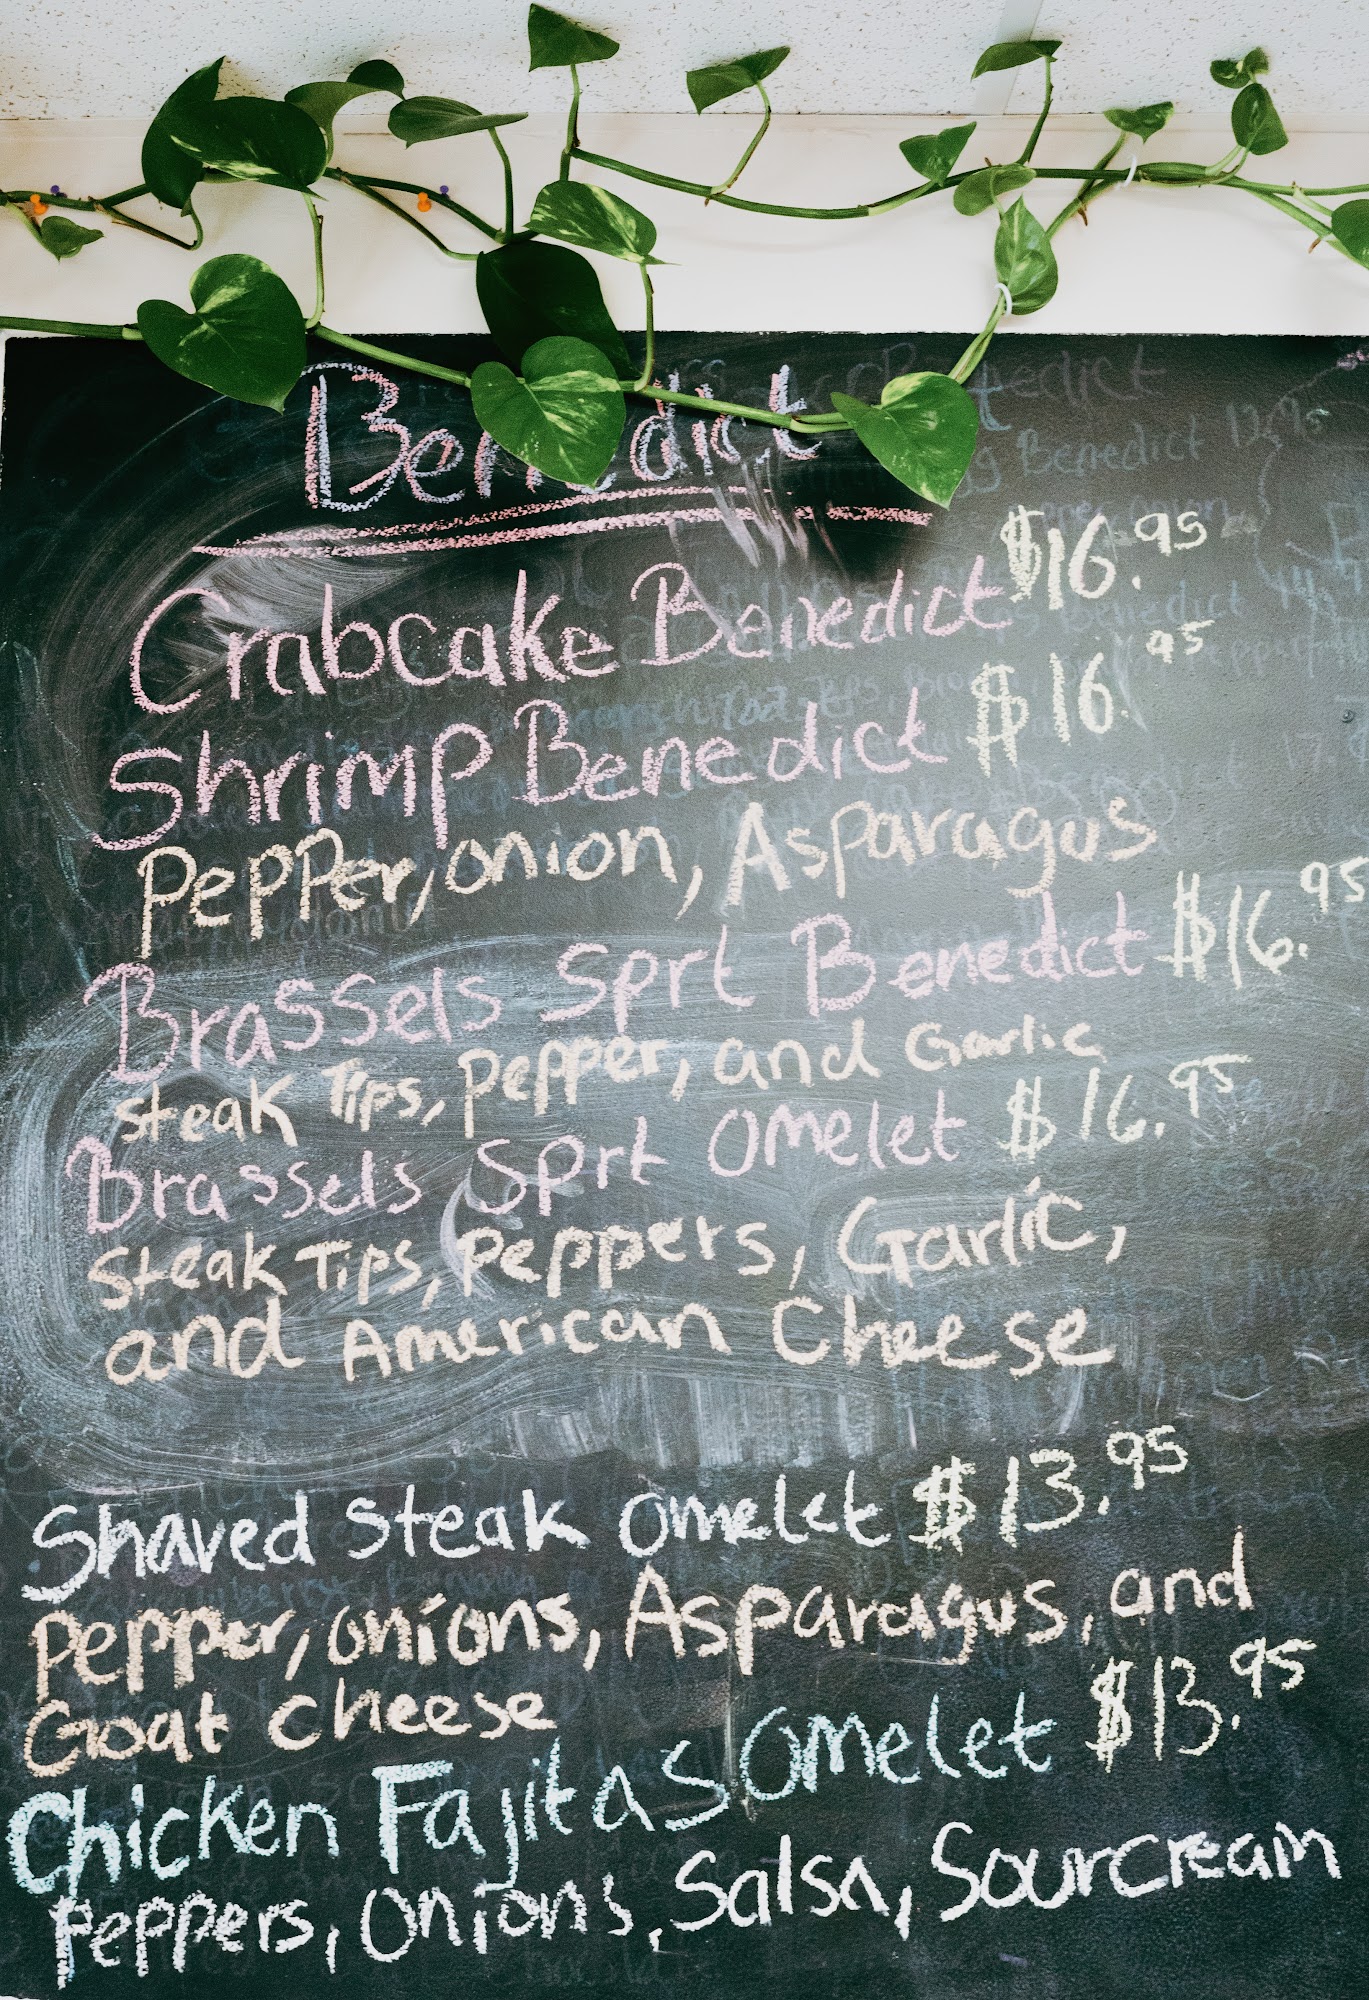 Benedict
Crabcake Benedict $16.95
Shrimp Benedict $16.95
Pepper, onion, Asparagus
Brassels Sprt Benedict $16.95
Steak Tips, Pepper, and Garlic
Brassels Sprt Omelet $16.95
Steak Tips, Peppers, Garlic,
and American Cheese
Shaved Steak Omelet $13.95
Pepper, onions, Asparagus, and
Goat cheese
Chicken Fajitas Omelet $13.95
Peppers, Onions, Salsa, Sourcream